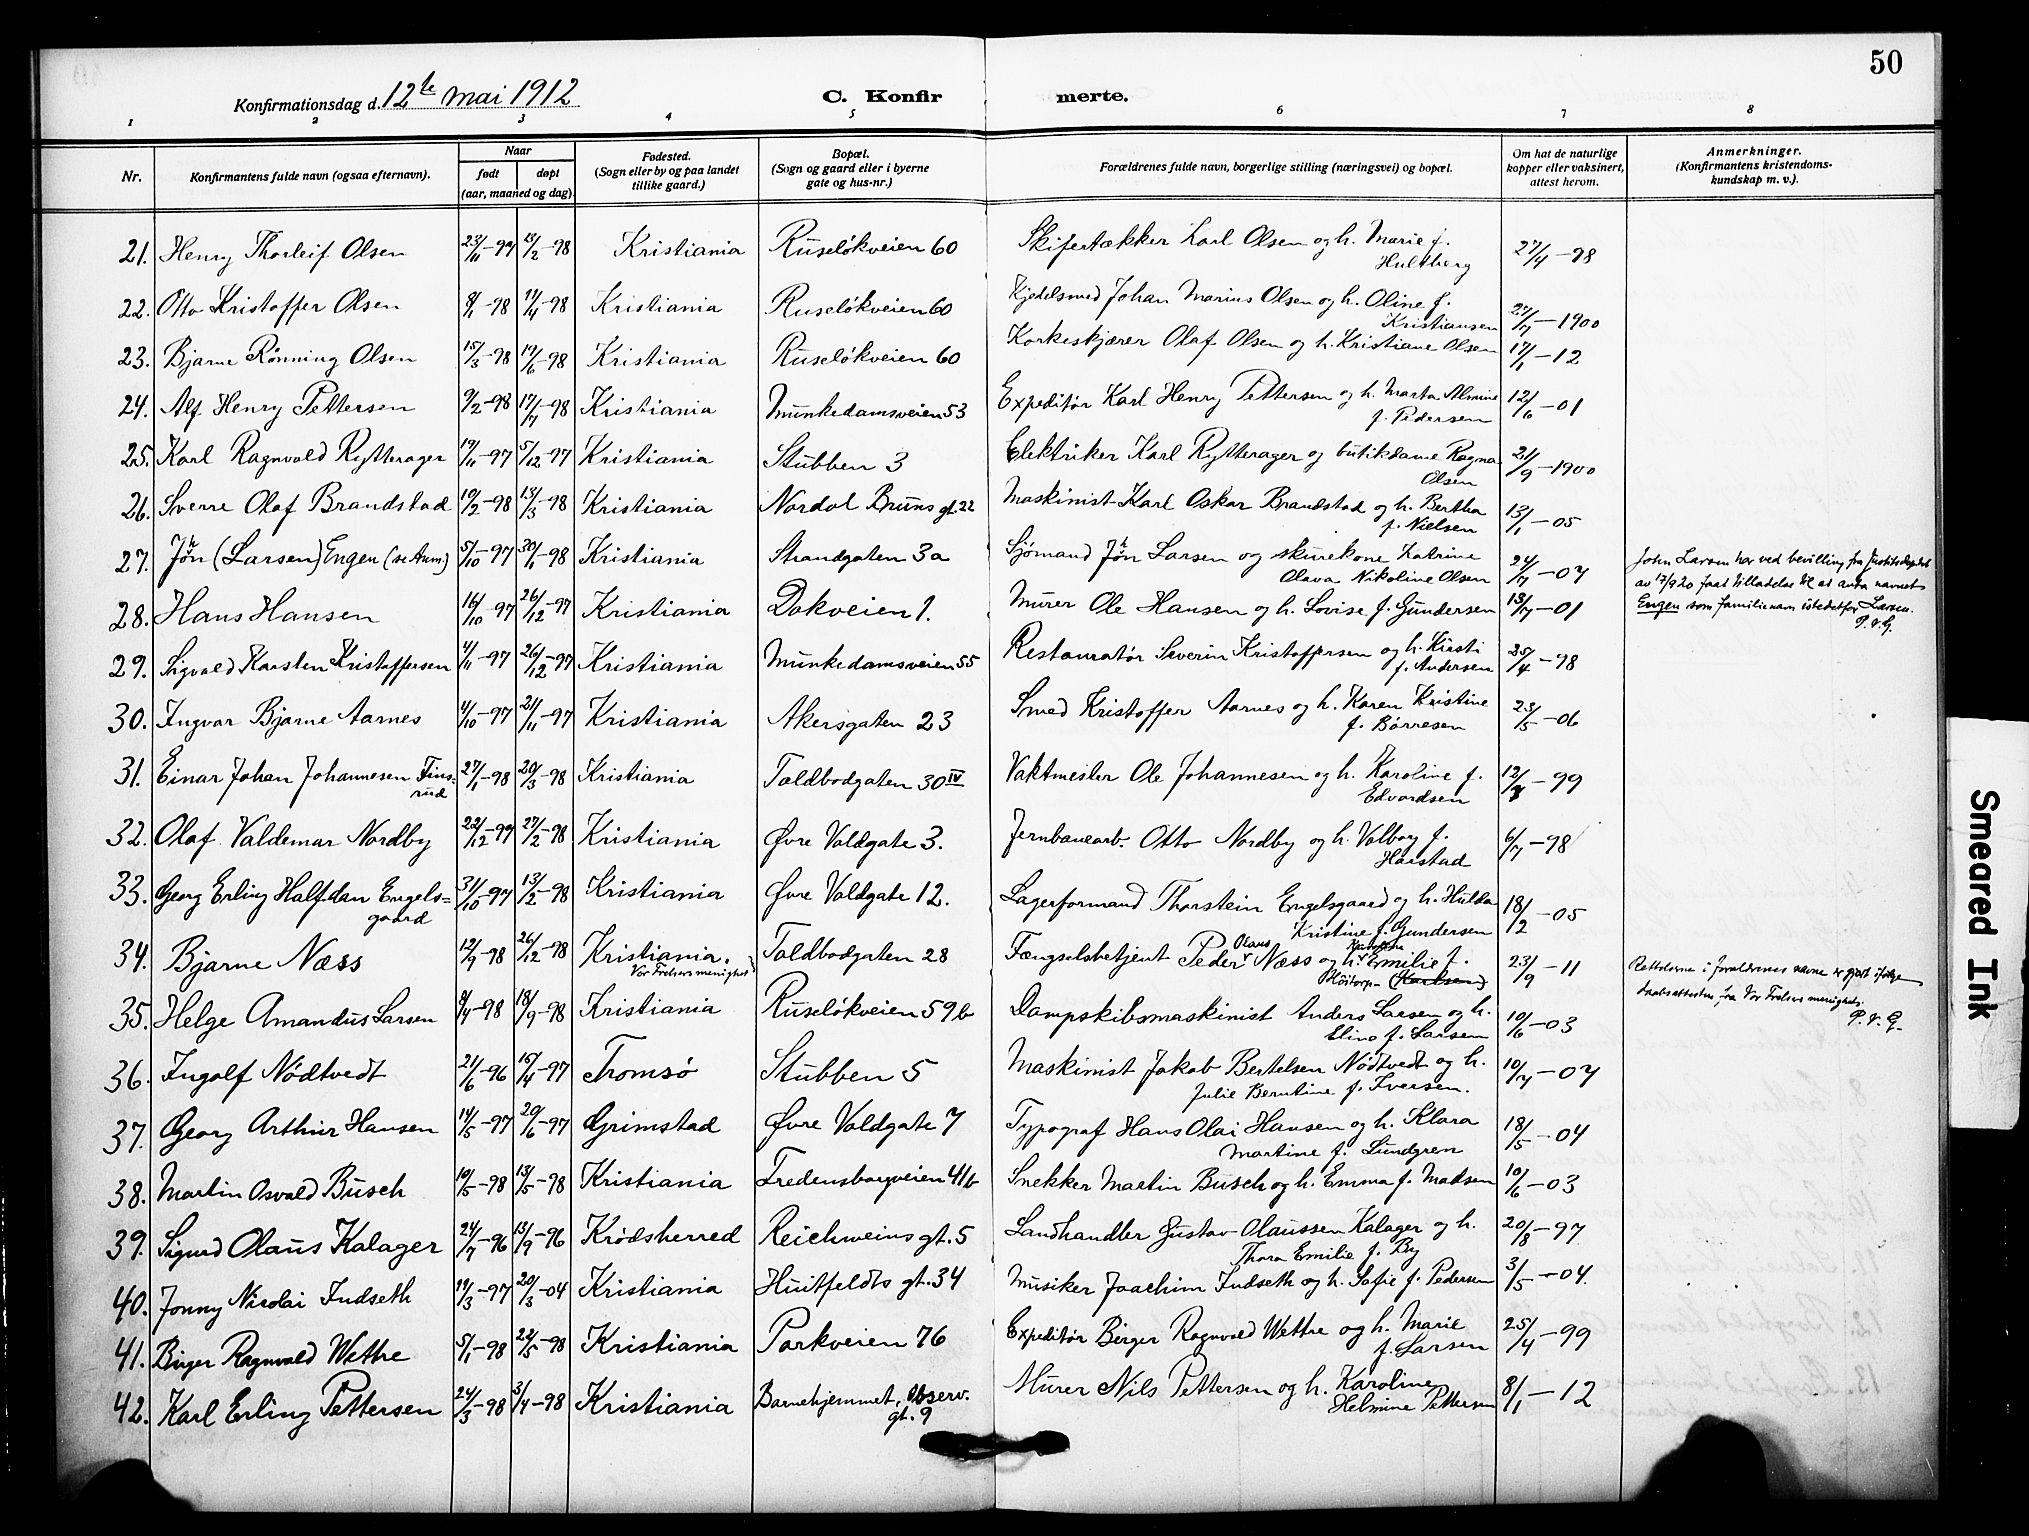 50
Konfirmationsdag d. 12te mai 1912 C. Konfir merte.
1 2 3 4 5 6 7 8
Nr. Konfirmantens fulde navn (ogsaa efternavn). Naar født døpt (aar, maaned og dag). Fødested. (Sogn eller by og paa landet tillike gaard.) Bopæl. (Sogn og gaard eller i byerne gate og hus-nr.) Forældrenes fulde navn, borgerlige stilling (næringsvei) og bopæl. Om hat de naturlige kopper eller vaksinert, attest herom. Anmerkninger. (Konfirmantens kristendoms-kundskap m. v.).
21. Henry Thorleif Olsen 23/11-97 13/2-98 Kristiania Ruseløkveien 60 Skifertækker Karl Olsen og h. Marie f. Hultberg 27/4-98
22. Otto Kristoffer Olsen 8/1-98 11/4-98 Kristiania Ruseløkveien 60 Kjedelsmed Johan Marius Olsen og h. Oline f. Kristiansen 27/7-1900
23. Bjarne Rønning Olsen 15/3-98 19/6-98 Kristiania Ruseløkveien 60 Korkeskjærer Olaf Olsen og h. Kristiane Olsen 17/1-12
24. Alf Henry Pettersen 9/2-98 17/7-98 Kristiania Munkedamsveien 53 Expeditør Karl Henry Pettersen og h. Marta Almine f. Pedersen 12/6-01
25. Karl Ragnvald Rytterager 19/11-97 5/12-97 Kristiania Stubben 3 Elektriker Karl Rytterager og butikdame Ragna Olsen 21/9-1900
26. Sverre Olaf Brandstad 10/2-98 13/3-98 Kristiania Nordal Bruns gt. 22 Maskinist Karl Oskar Brandstad og h. Bertha f. Nielsen 13/1-05
27. John (Larsen) Engen (se Anm.) 5/10-97 30/1-98 Kristiania Strandgaten 3a Sjømand John Larsen og skurekone Katrine Olava Nikoline Olsen 24/7-07 John Larsen har ved bevilling fra Justitsdepartet
av 17/9 20 faat tilladelse til at anta navnet
Engen som familienavn istedetfor Larsen.
P. v. G.
28. Hans Hansen 16/10-97 26/12-97 Kristiania Dokveien 1. Murer Ole Hansen og h. Lovise f. Gundersen 13/7-01
29. Sigvald Karsten Kristoffersen 4/11-97 26/12-97 Kristiania Munkedamsveien 55 Restauratør Severin Kristoffersen og h. Kirsti f. Andersen 25/4-98
30. Ingvar Bjarne Aarnes 4/10-97 21/11-97 Kristiania Akersgaten 23 Smed Kristoffer Aarnes og h. Karen Kristine f. Børresen 23/5-06
31. Einar Johan Johannesen Finsrud 27/1-98 20/3-98 Kristiania Toldbodgaten 30 IV Vaktmester Ole Johannesen og h. Karoline f. Edvardsen 12/7-99
32. Olaf Valdemar Nordby 22/12-97 27/2-98 Kristiania Øvre Voldgate 3. Jernbanearb. Otto Nordby og h. Valborg f. Harstad 6/7-98
33. Georg Erling Halfdan Engelsgaard 31/10-97 13/2-98 Kristiania Øvre Voldgate 12. Lagerformand Thorstein Engelsgaard og h. Hulda Kristine f. Gundersen 18/2-05
34. Bjarne Næss 12/9-98 26/12-98 Kristiania. Vor Frelsers menighet Toldbodgaten 28 Fængselsbetjent Peder Olaus Næss og h. Emilie f. (Karlsen) 23/9-11 Rettelserne i forældrenes navne er gjort ifølge
daabsattesten fra Vor Frelsers menighet.
P. v. G.
35. Helge Amandus Larsen 8/4-98 18/9-98 Kristiania Ruseløkveien 59b Dampskibsmaskinist Anders Larsen og h. Elina f. Larsen 10/6-03
36. Ingolf Nødtvedt 21/6-96 15/4-97 Tromsø Stubben 5 Maskinist Jakob Bertelsen Nødtvedt og h. Julie Berntine f. Iversen. 10/7-07
37. Georg Arthur Hansen 14/5-97 20/6-97 Grimstad Øvre Voldgate 7 Typograf Hans Olai Hansen og h. Klara Martine f. Lundgren 18/5-04
38. Martin Osvald Busch 10/5-98 13/5-98 Kristiania Fredensborgveien 41b Snekker Martin Busch og h. Emma f. Madsen 10/6-03
39. Sigurd Olaus Kalager 24/7-96 13/9-96 Krødsherred Reichweins gt. 5 Landhandler Gustav Olaussen Kalager og h. Thora Emilie f. By 20/8-97
40. Jonny Nicolai Indseth 11/3-97 20/3-04 Kristiania Huitfeldts gt. 34 Musiker Joachim Indseth og h. Sofie f. Pedersen 3/5-04.
41. Birger Ragnvald Wettre 5/1-98 22/5-98 Kristiania Parkveien 76 Expeditør Birger Ragnvald Wettre og h. Marie f. Larsen 25/4-99
42. Karl Erling Pettersen 24/3-98 3/4-98 Kristiania Barnehjemmet, Observ. gt. 9 Murer Nils Pettersen og h. Karoline Helmine Pettersen 8/1-12
Smeared Ink